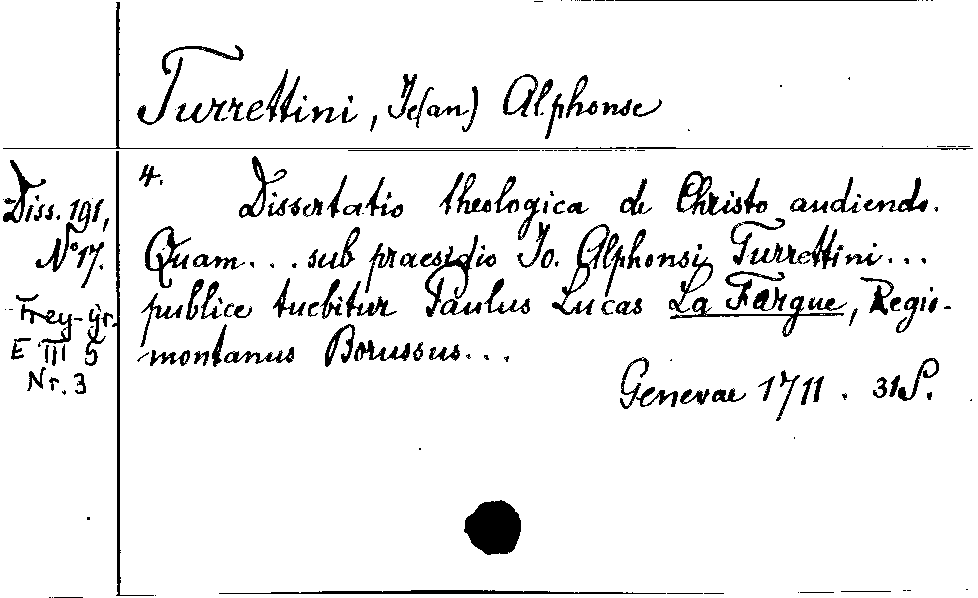 Turrettini, Je(an) Alphonse
4.
Dissertatio theologica de Christo audiendo.
Quam... sub praesidio Jo. Alphonsi Turrettini...
publice tuebitur Paulus Lucas La Fargue, Regio-
montanus Borussus...
Genevae 1711. 31 S.
Diss. 191,
No 17.
Frey-Gr.
E III 5
Nr. 3